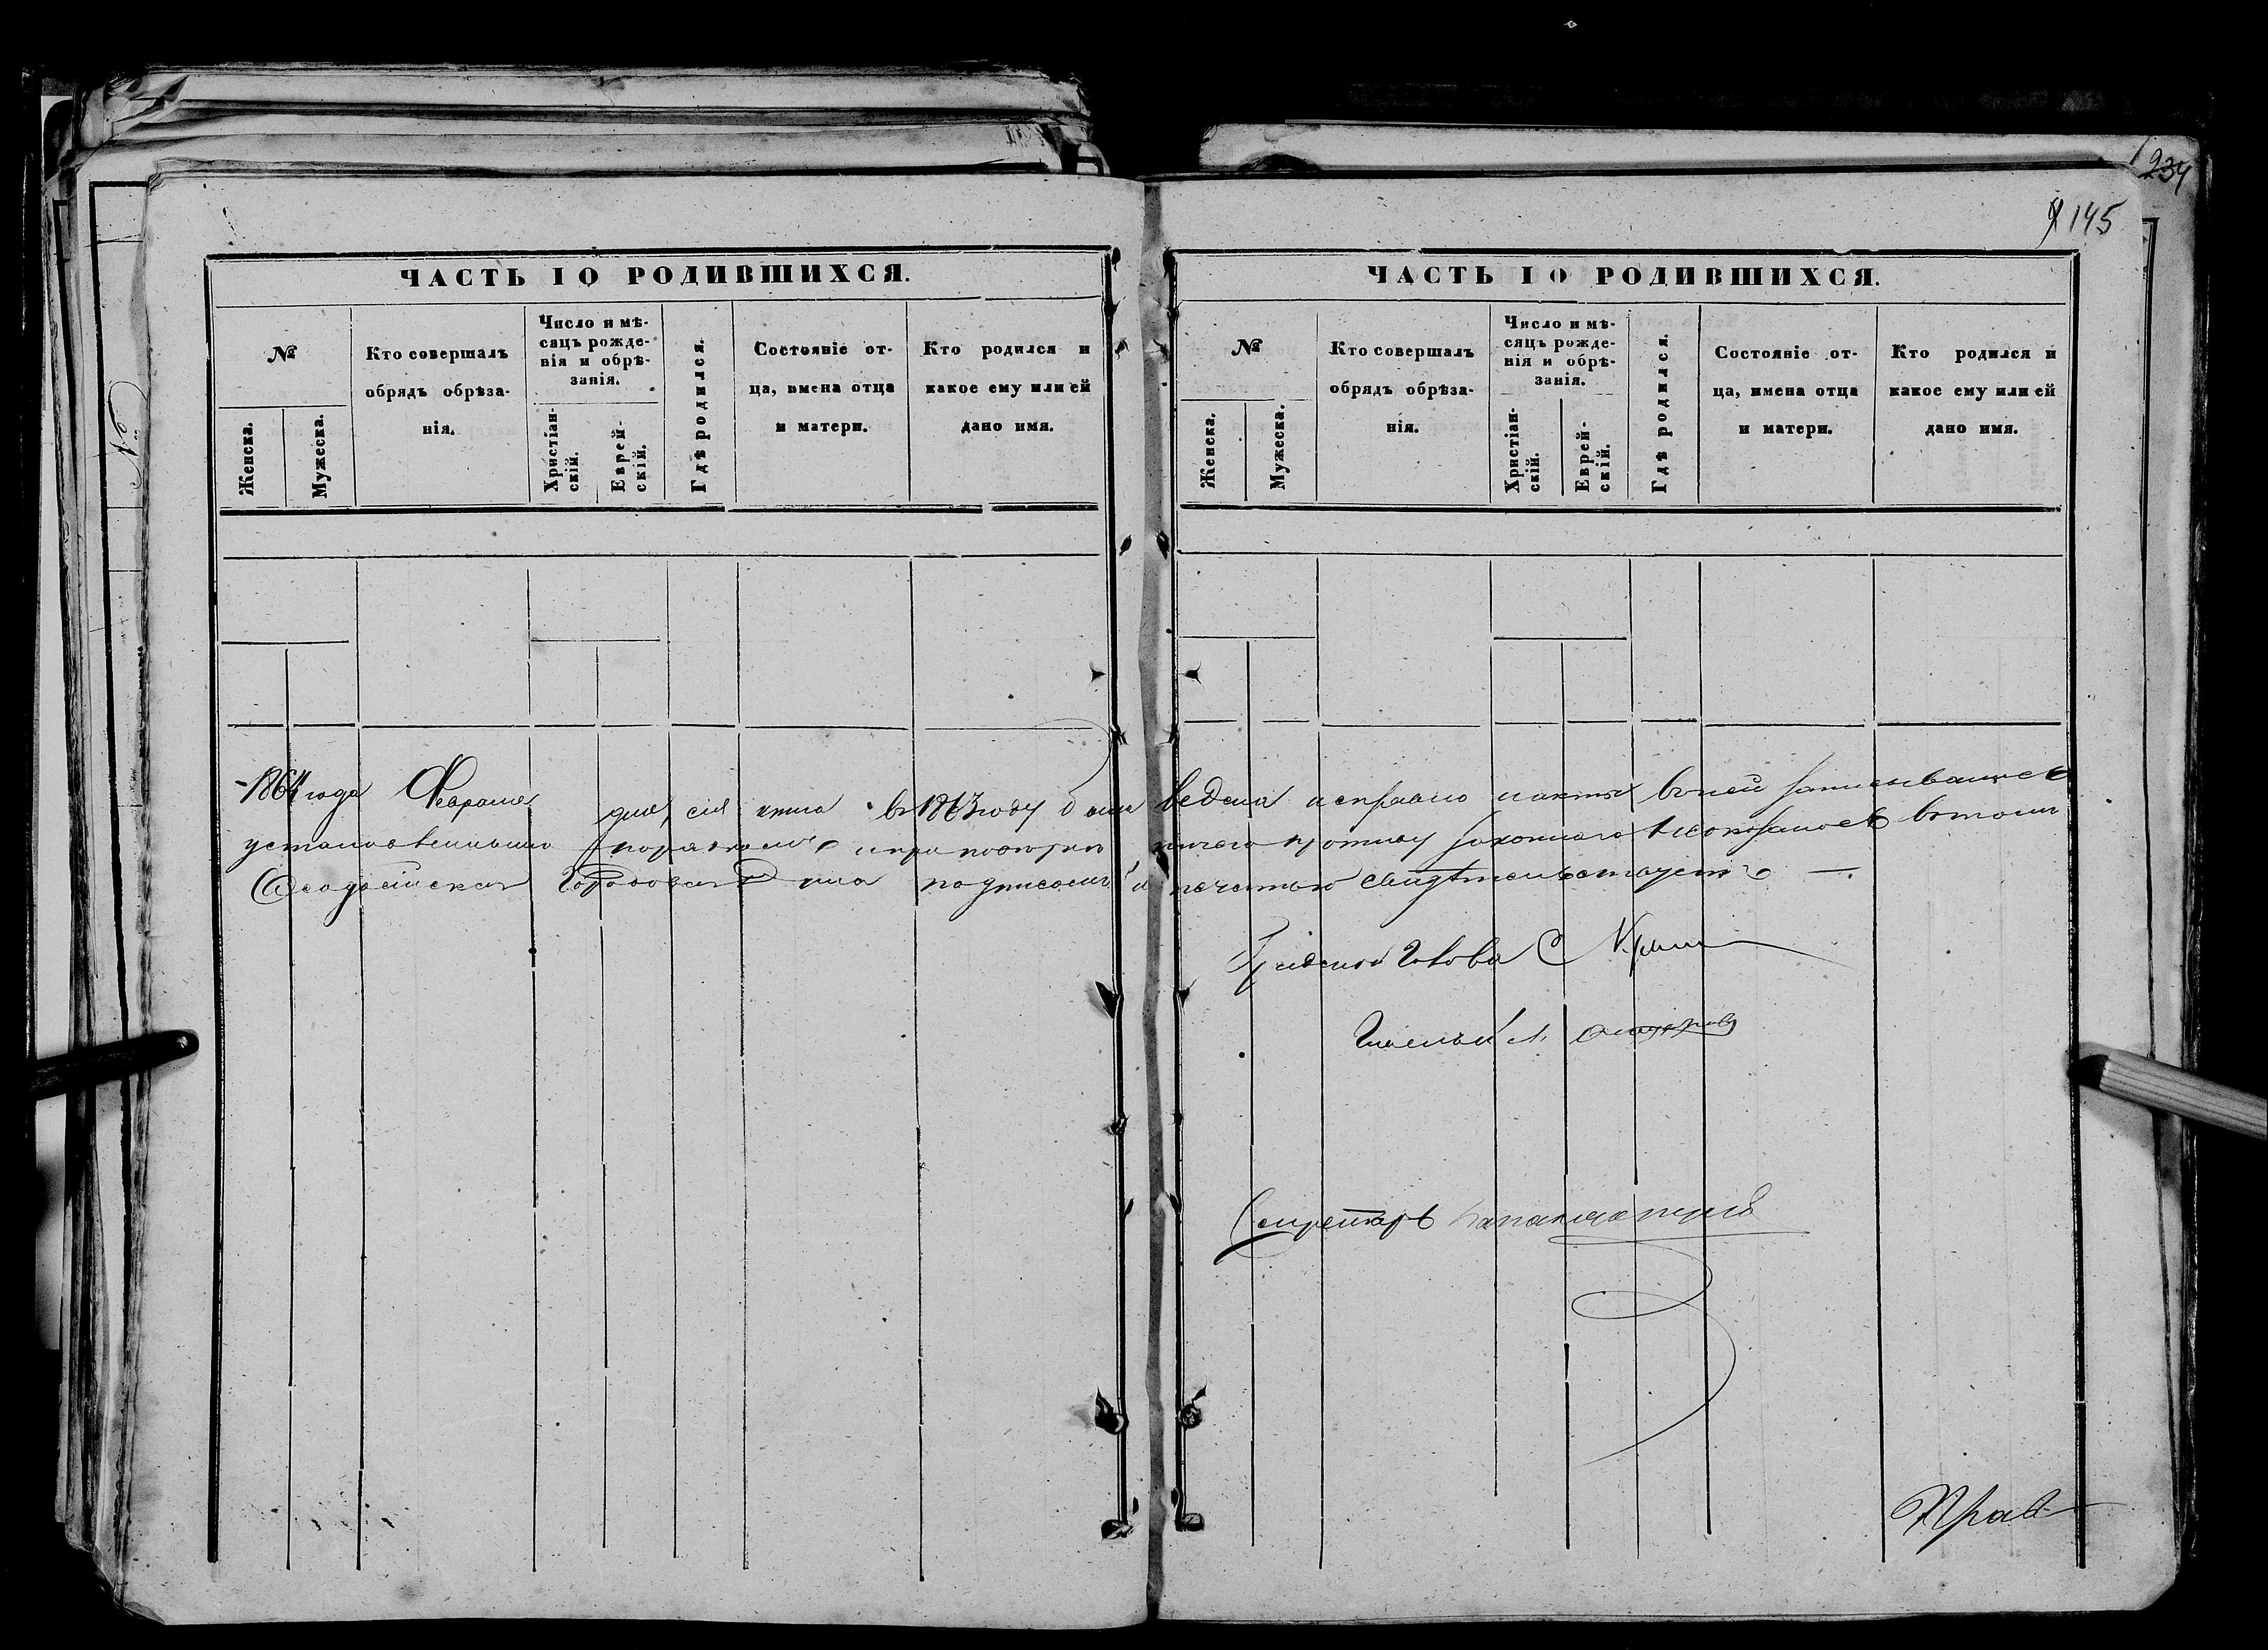 234
145
ЧАСТЬ I О РОДИВШИХСЯ.
№
Женска.
Мужеска.
Кто совершалъ
обрядъ обрѣза-
нія.
Число и мѣ-
сяцъ рожде-
нія и обрѣ-
занія.
Христіан-
скій.
Еврей-
скій.
Гдѣ родился.
Состояніе от-
ца, имена отца
и матери.
Кто родился и
какое ему или ей
дано имя.
ЧАСТЬ I О РОДИВШИХСЯ.
№
Женска.
Мужеска.
Кто совершалъ
обрядъ обрѣза-
нія.
Число и мѣ-
сяцъ рожде-
нія и обрѣ-
занія.
Христіан-
скій.
Еврей-
скій.
Гдѣ родился.
Состояніе от-
ца, имена отца
и матери.
Кто родился и
какое ему или ей
дано имя.
1864 года Февраля дня, сія книга въ 1863 году была ведена исправно и акты въ ней записывались
установленнымъ порядкомъ и при ничего противу законнаго неоказалось въ томъ
Феодосійская Городовая Дума подписомъ и печатью свидѣтельствуетъ
Голова С Крымъ
Гласный
Секретарь